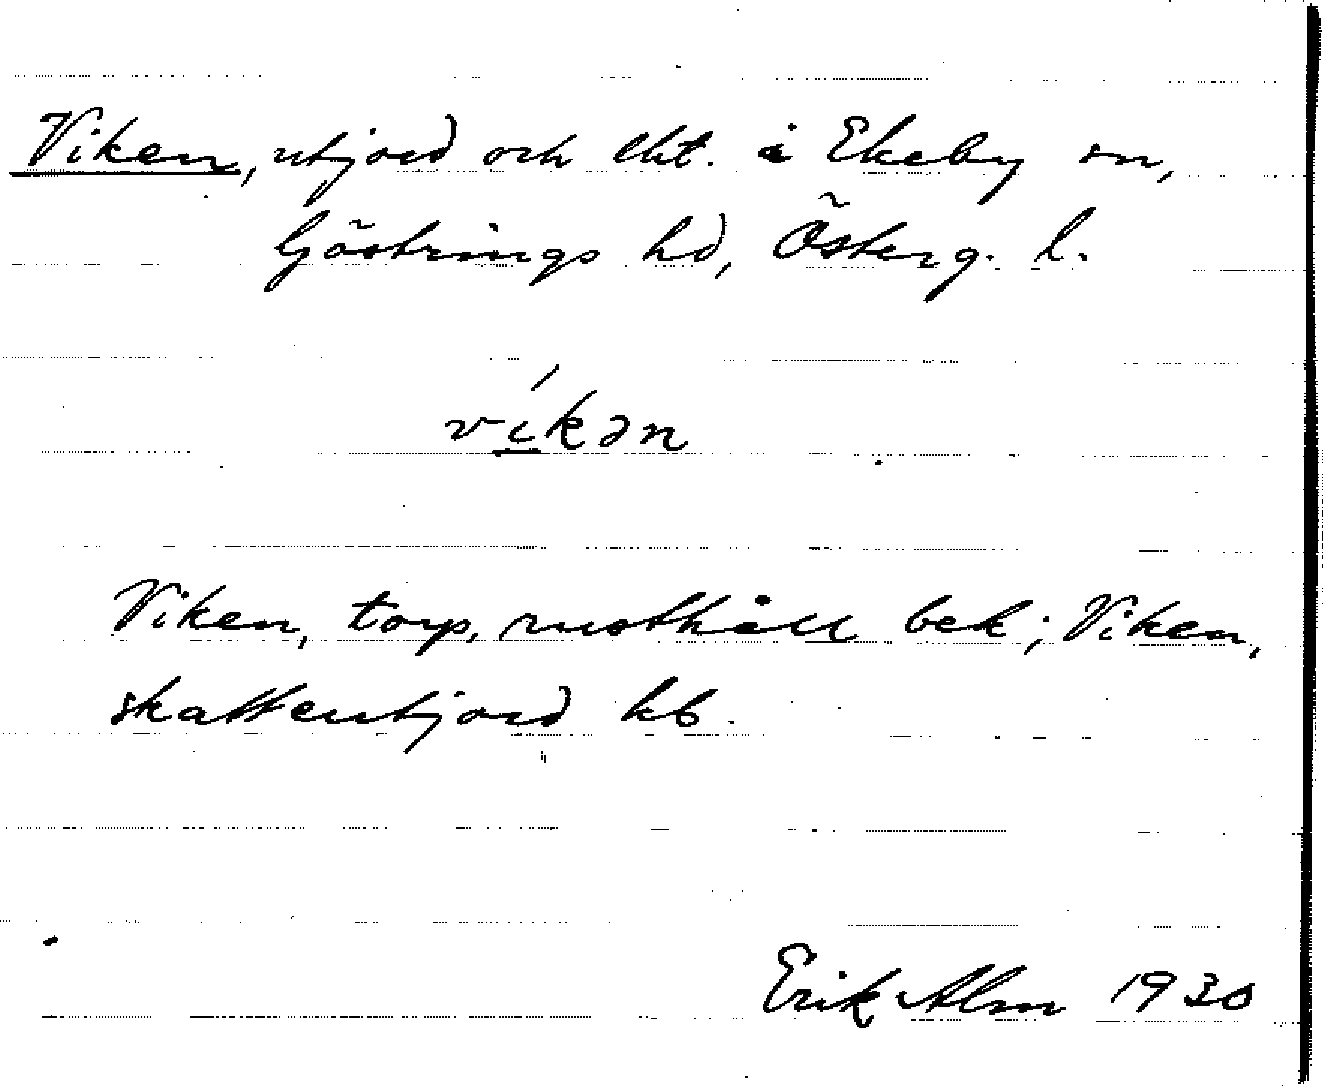 Viken, utjord och lht. i Ekeby sn,
Göstrings hd, Österg. l.
víkən
Viken, torp, rusthåll bek; Viken,
skatteutjord kb.
Erik Alm 1930